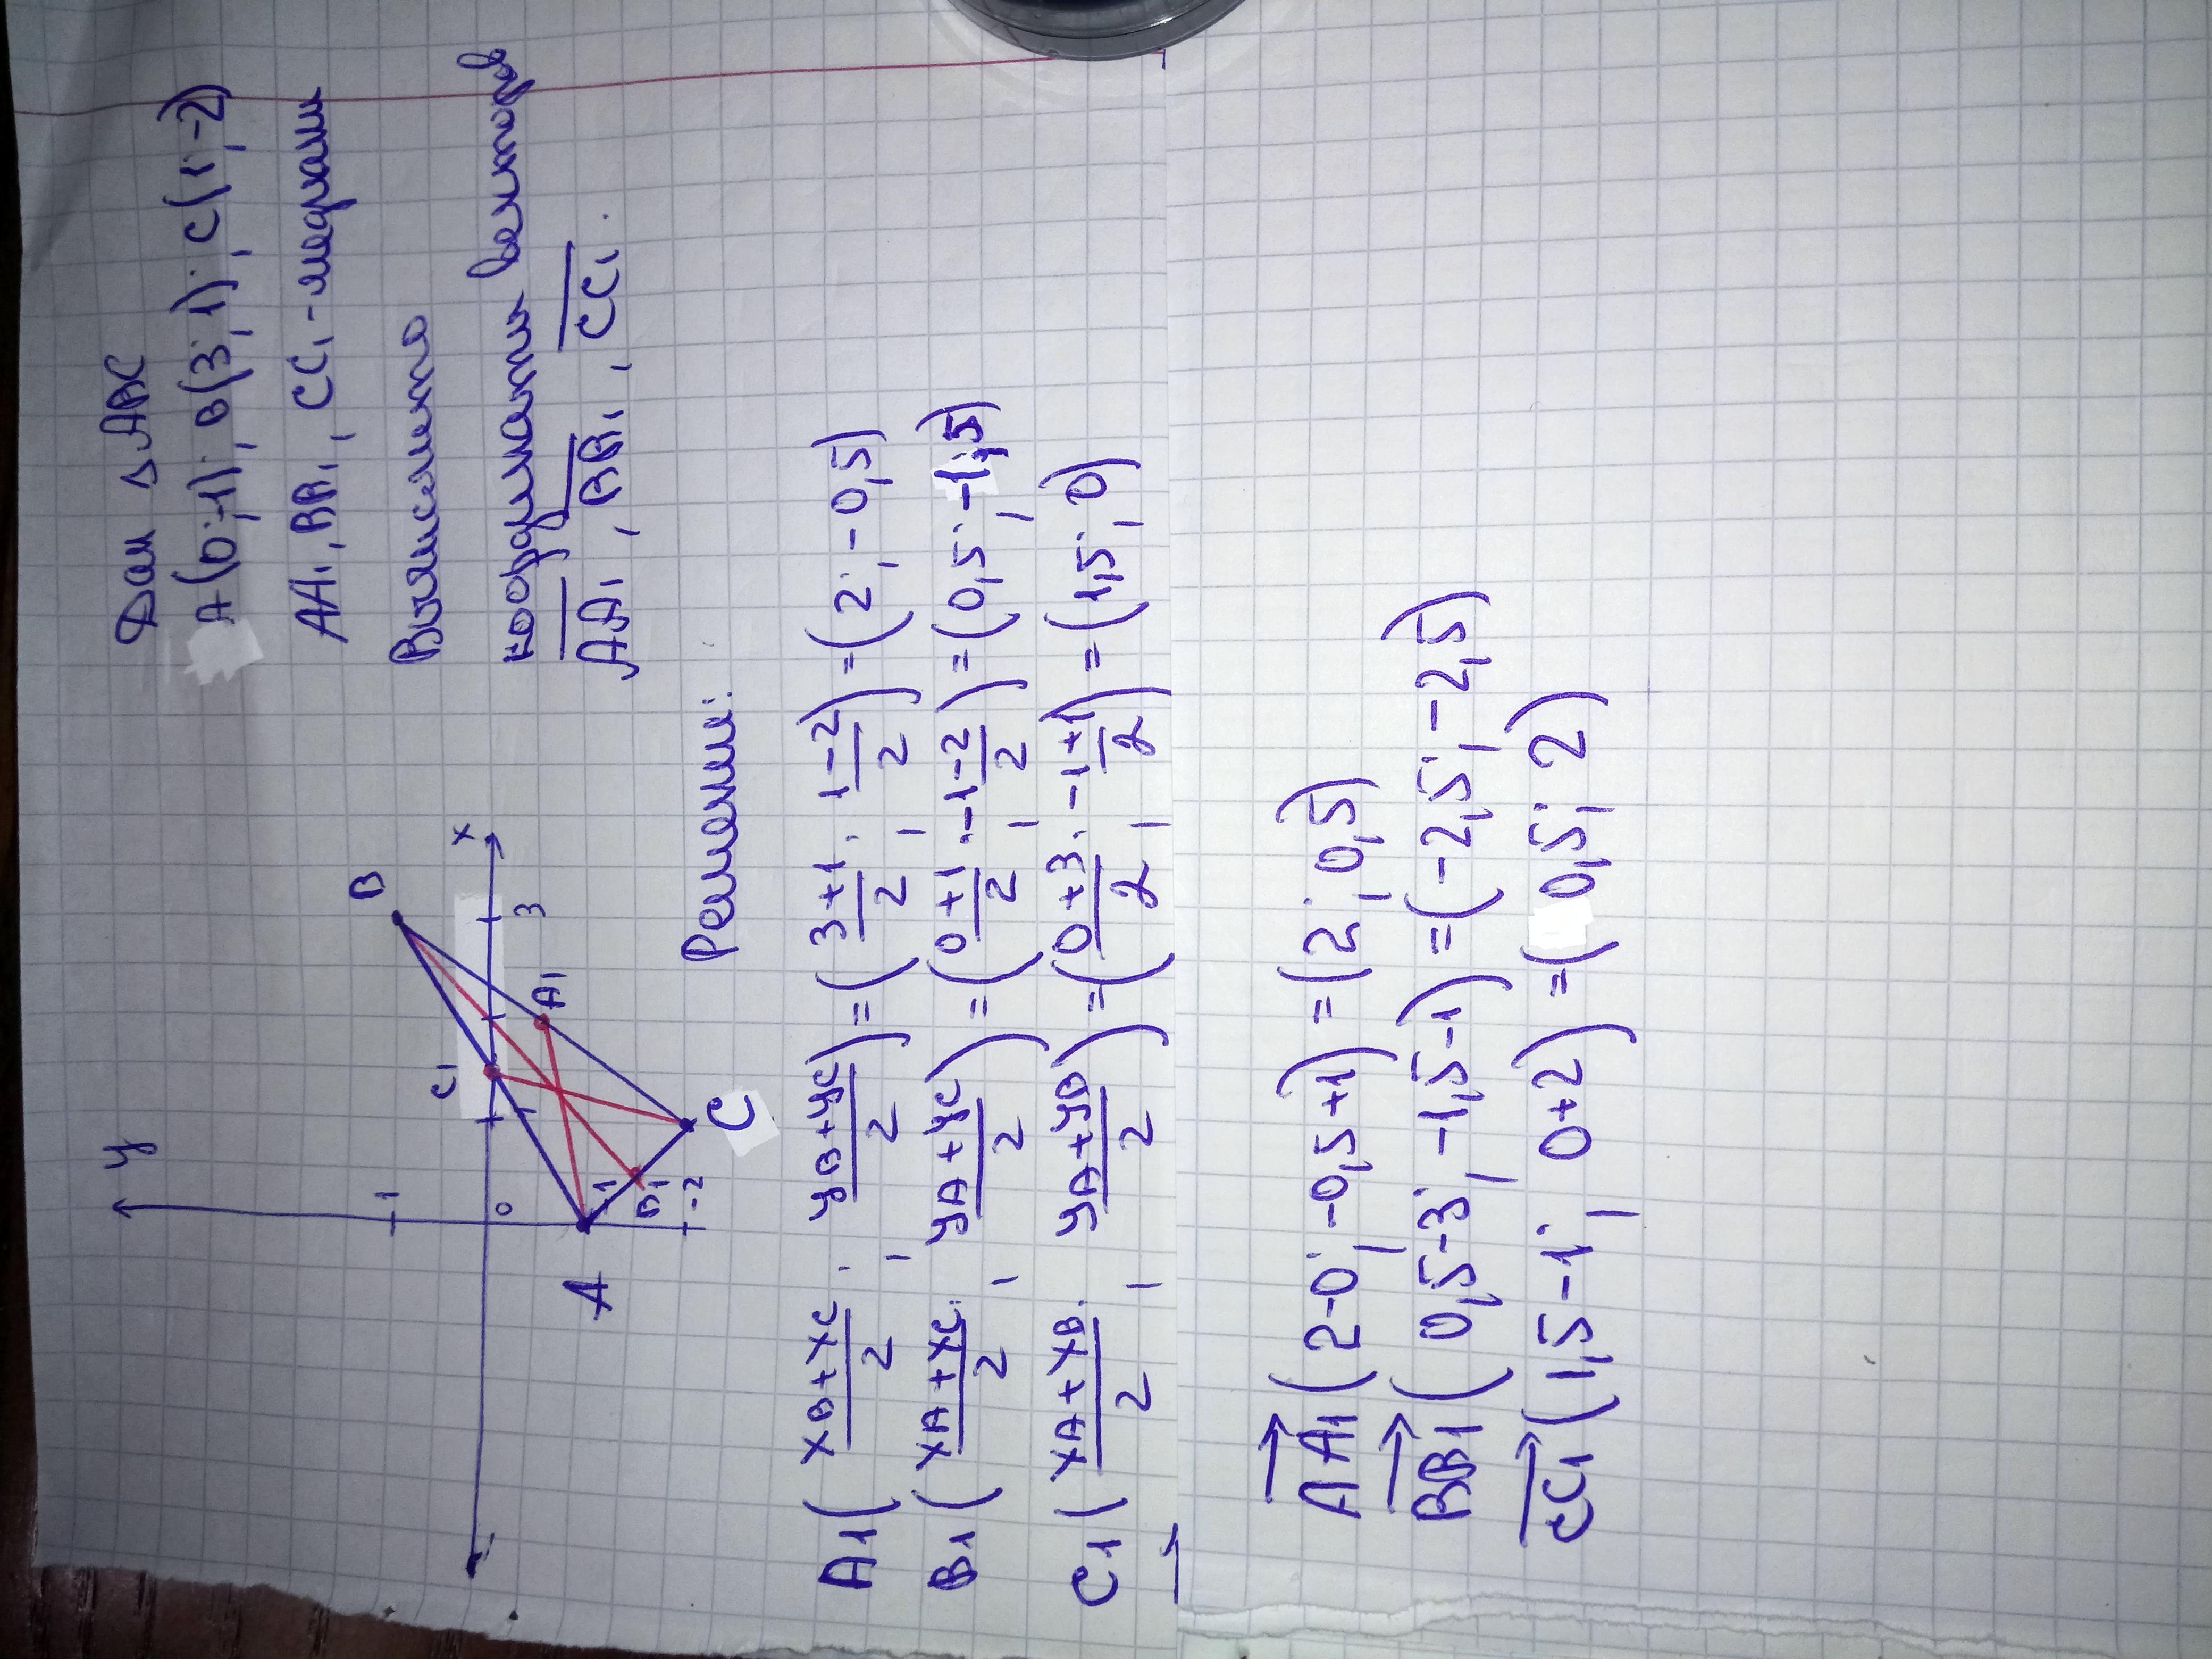 Дан ΔABC
A(0;-1); B(3;1); C(1;-2)
AA₁, BB₁, CC₁ - медианы
Вычислите
координаты векторов
AA₁, BB₁, CC₁.
y
1
0
-1
-2
3
x
A
B
C
A1
B1
C1
Решение:
A1((xB+xC)/2; (yB+yC)/2)=((3+1)/2; (1-2)/2)=(2;-0,5)
B1((xA+xC)/2; (yA+yC)/2)=((0+1)/2; (-1-2)/2)=(0,5;-1,5)
C1((xA+xB)/2; (yA+yB)/2)=((0+3)/2; (-1+1)/2)=(1,5;0)
AA1(2-0;-0,5+1)=(2;0,5)
BB1(0,5-3;-1,5-1)=(-2,5;-2,5)
CC1(1,5-1; 0+2)=(0,5;2)